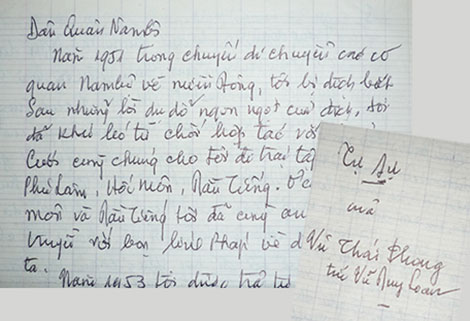 Dân Quân Nam bộ
Năm 1951 trong chuyến di chuyển các cơ
quan Nam bộ về miền Đông, tôi bị địch bắt
Sau những lời dụ dỗ ngon ngọt của địch, tôi
đã khéo léo từ chối hợp tác với
Cuối cùng chúng cho tôi đi trại tập
Phú Lâm, Hóc môn, Dầu Tiếng. Ở
môn và Dầu Tiếng tôi đã cùng an
truyền với bọn lính Pháp về
ta.
Năm 1953 tôi được trả tự
Tự sự
của
Vũ Thái Phong
tức Vũ Duy Loan